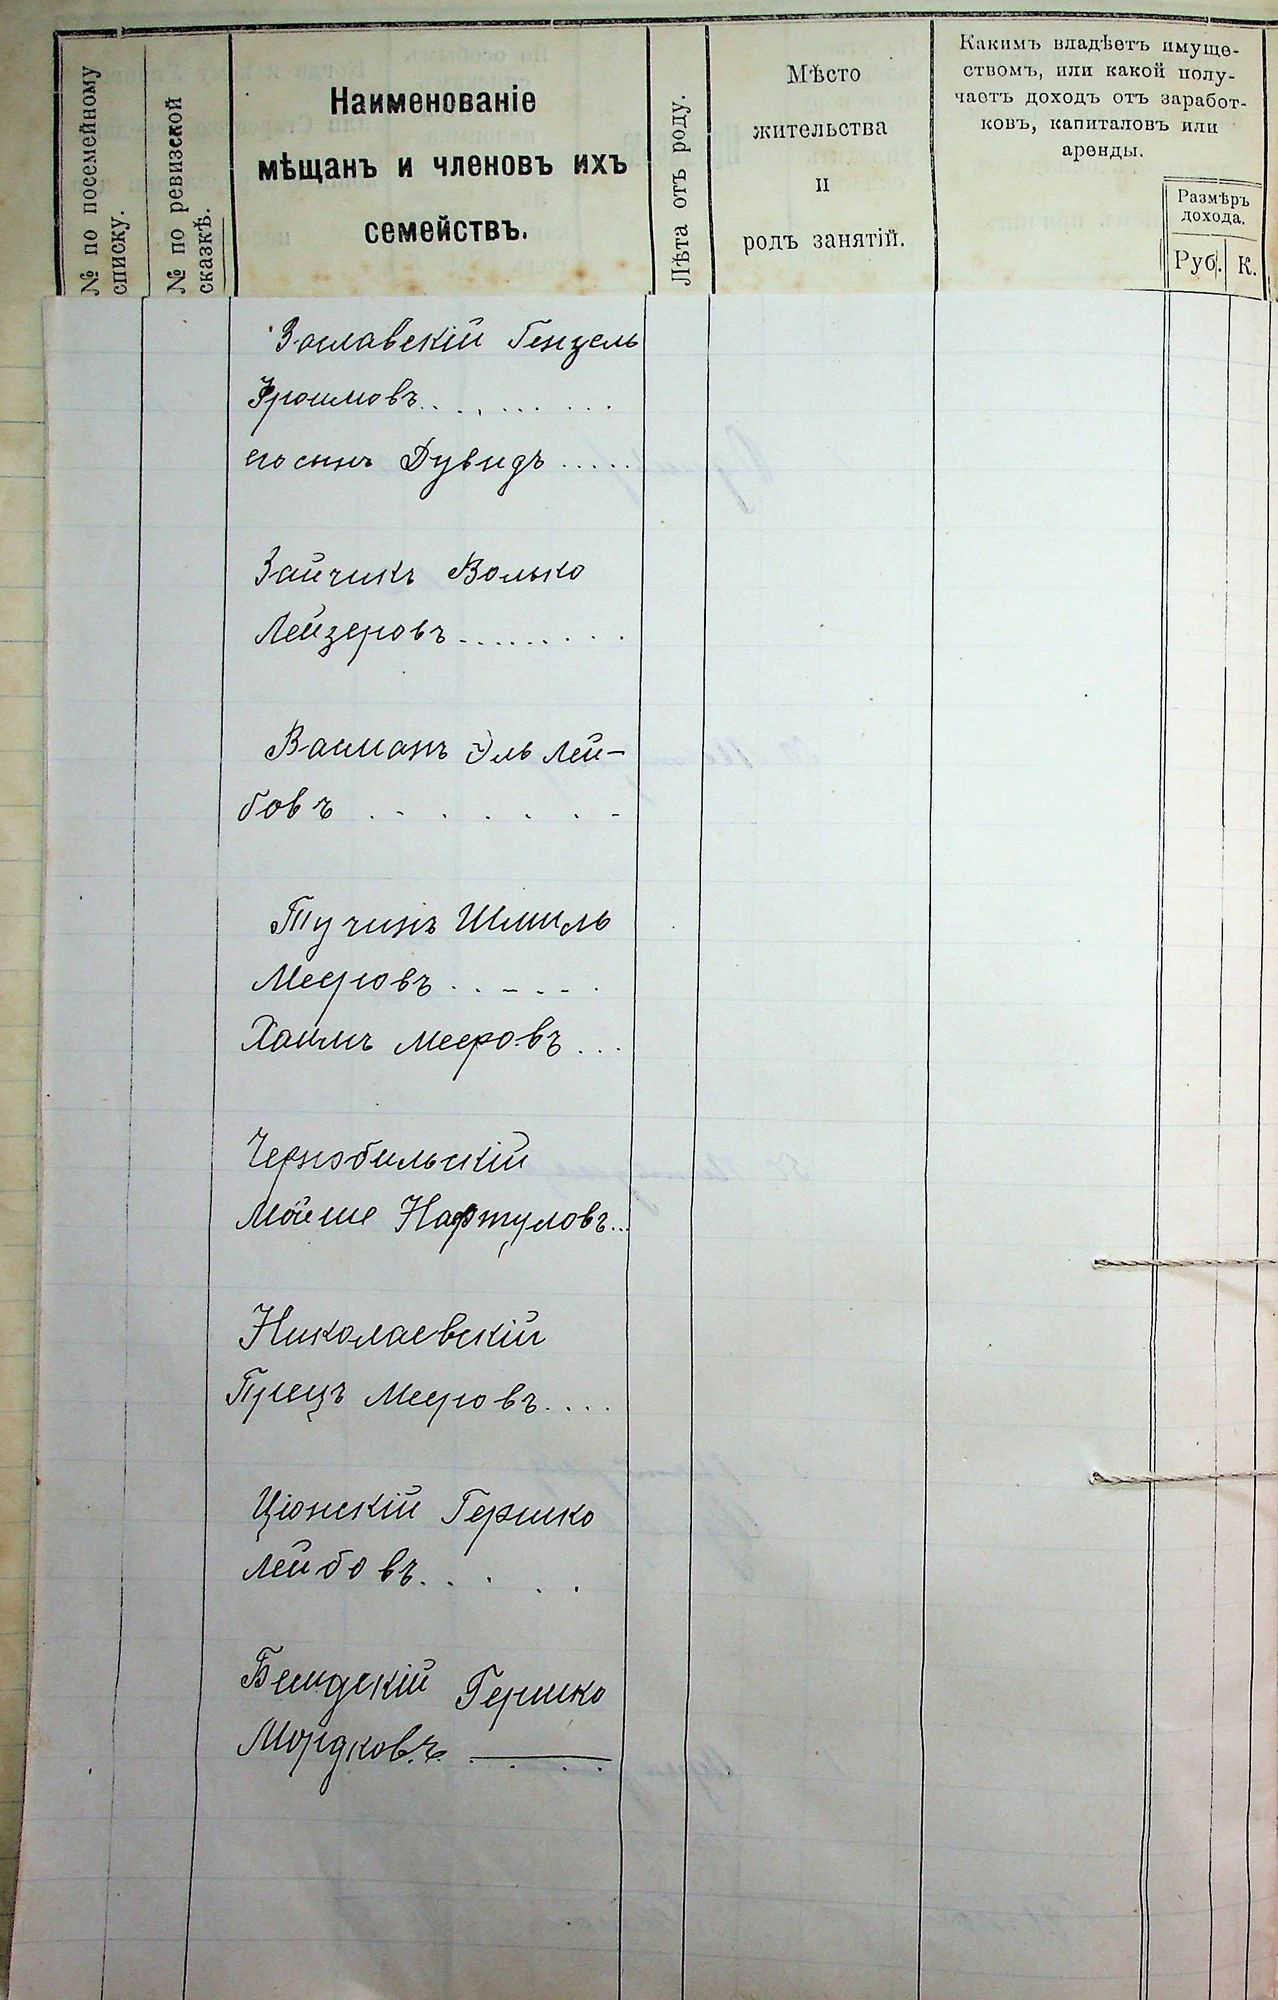 № по посемейному
списку.
№ по ревизской
сказкѣ.
Наименованіе
мѣщанъ и членовъ ихъ
семействъ.
Лѣта отъ роду.
Мѣсто
жительства
и
родъ занятій.
Какимъ владѣетъ имуще-
ствомъ, или какой полу-
чаетъ доходъ отъ заработ-
ковъ, капиталовъ или
аренды.
Размѣръ
дохода.
Руб. К.
Заславскій Гензель
Фроимовъ..........
его сынъ Дувидъ.....
Зайчикъ Волько
Лейзеровъ.........
Васманъ Эль Лей-
бовъ.......
Тучинъ Шмиль
Мееровъ......
Хаимъ Мееровъ...
Чернобильскій
Мойше Нафтуловъ...
Николаевскій
Герецъ Мееровъ....
Ціонскій Гершко
Лейбовъ.....
Гершко
Мордковъ